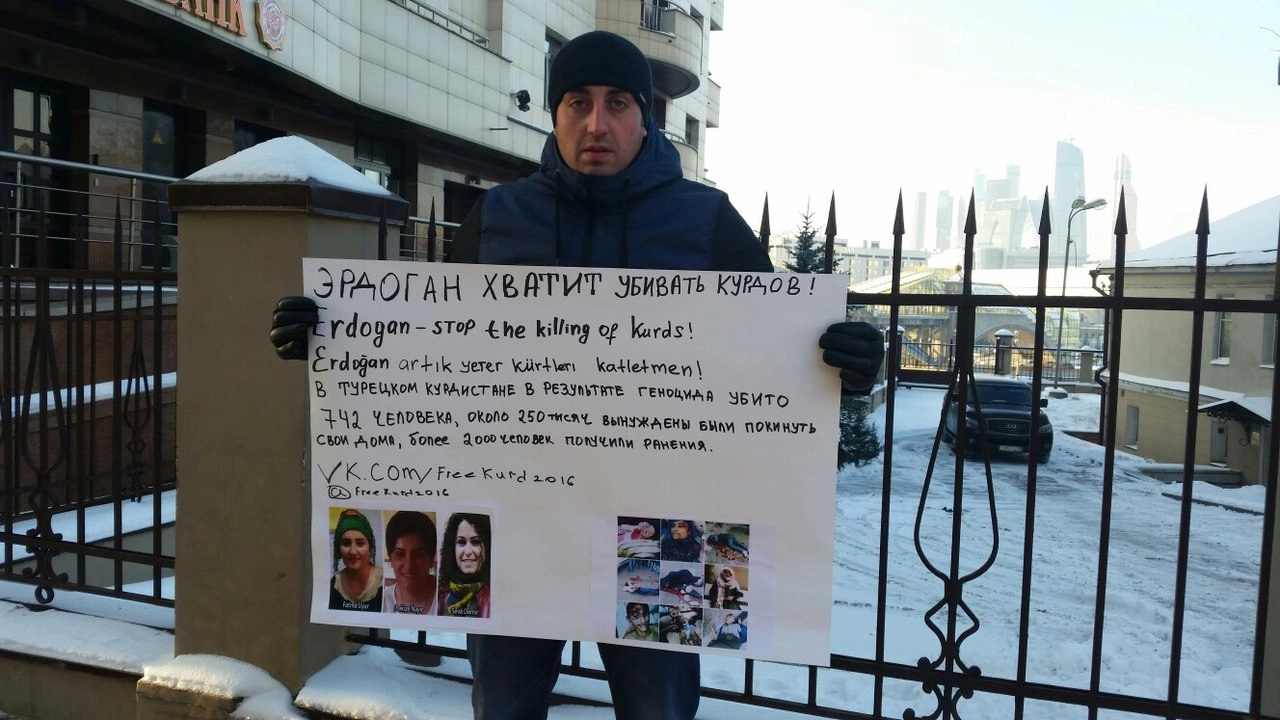 БАНК
ЭРДОГАН ХВАТИТ УБИВАТЬ КУРДОВ!
Erdogan – STOP the killing of Kurds!
Erdoğan artık yeter kürtleri katletmen!
В ТУРЕЦКОМ КУРДИСТАНЕ В РЕЗУЛЬТАТЕ ГЕНОЦИДА УБИТО
742 ЧЕЛОВЕКА, ОКОЛО 250 ТИСЯЧ ВЫНУЖДЕНЫ БЫЛИ ПОКИНУТЬ
СВОИ ДОМА, БОЛЕЕ 2000 ЧЕЛОВЕК ПОЛУЧИЛИ РАНЕНИЯ.
VK.COM/FreeKurd2016
@FreeKurd2016
Fatma Uyar
Pakize Nayır
Sêvê Demir